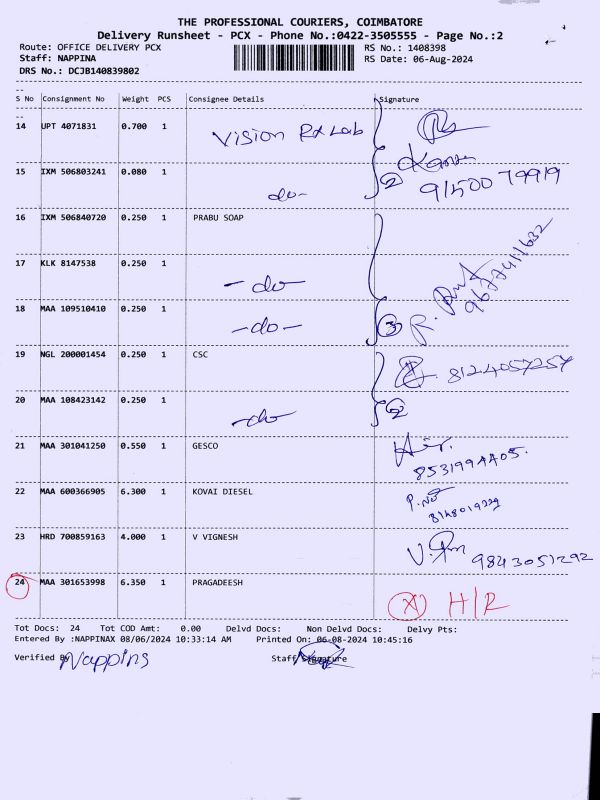 THE PROFESSIONAL COURIERS, COIMBATORE
Delivery Runsheet - PCX - Phone No.:0422-3505555 - Page No.:2
Route: OFFICE DELIVERY PCX RS No.: 1408398
Staff: NAPPINA RS Date: 06-Aug-2024
DRS No.: DCJB140839802
S No Consignment No Weight PCS Consignee Details Signature
14 UPT 4071831 0.700 1 Vision Rx Lab
15 IXM 506803241 0.080 1 do- ② 9150079919
16 IXM 506840720 0.250 1 PRABU SOAP
17 KLK 8147538 0.250 1 -do-
18 MAA 109510410 0.250 1 -do- ③ 9677411632
19 NGL 200001454 0.250 1 CSC 8124057257
20 MAA 108423142 0.250 1 -do ②
21 MAA 301041250 0.550 1 GESCO
22 MAA 600366905 6.300 1 KOVAI DIESEL
23 HRD 700859163 4.000 1 V VIGNESH 9843051292
24 MAA 301653998 6.350 1 PRAGADEESH X H/R
Tot Docs: 24 Tot COD Amt: 0.00 Delvd Docs: Non Delvd Docs: Delvy Pts:
Entered By :NAPPINAX 08/06/2024 10:33:14 AM Printed On: 06-08-2024 10:45:16
Verified By Nappina Staff Signature